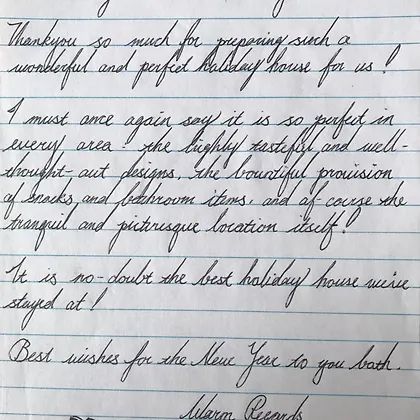 Thankyou so much for preparing such a
wonderful and perfect holiday house for us!
I must once again say it is so perfect in
every area: the highly tasteful and well-
thought-out designs, the bountiful provision
of snacks and bathroom items, and of course the
tranquil and picturesque location itself!
It is no-doubt the best holiday house we've
stayed at!
Best wishes for the New Year to you both.
Warm Regards